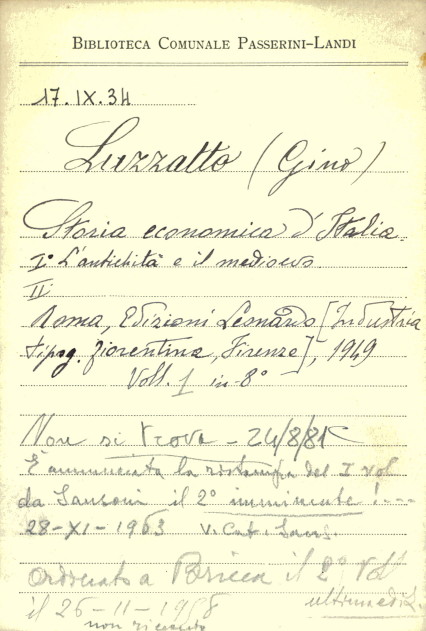 BIBLIOTECA COMUNALE PASSERINI-LANDI
17.IX.34
Luzzatto (Gino)
Storia economica d'Italia.
I° L'antichità e il medioevo
II
Roma, Edizioni Leonardo [Industria
tipog. fiorentina, Firenze], 1949
Voll. 1 in-8°
Non si trova - 24/8/81
È annunciata la ristampa del I vol
da Sansoni il 2° imminente !---
28-XI-1963 V. Cat. Sans.
Ordinato a Bricca il 2° Vol
il 26-11-1968
non ricevuto